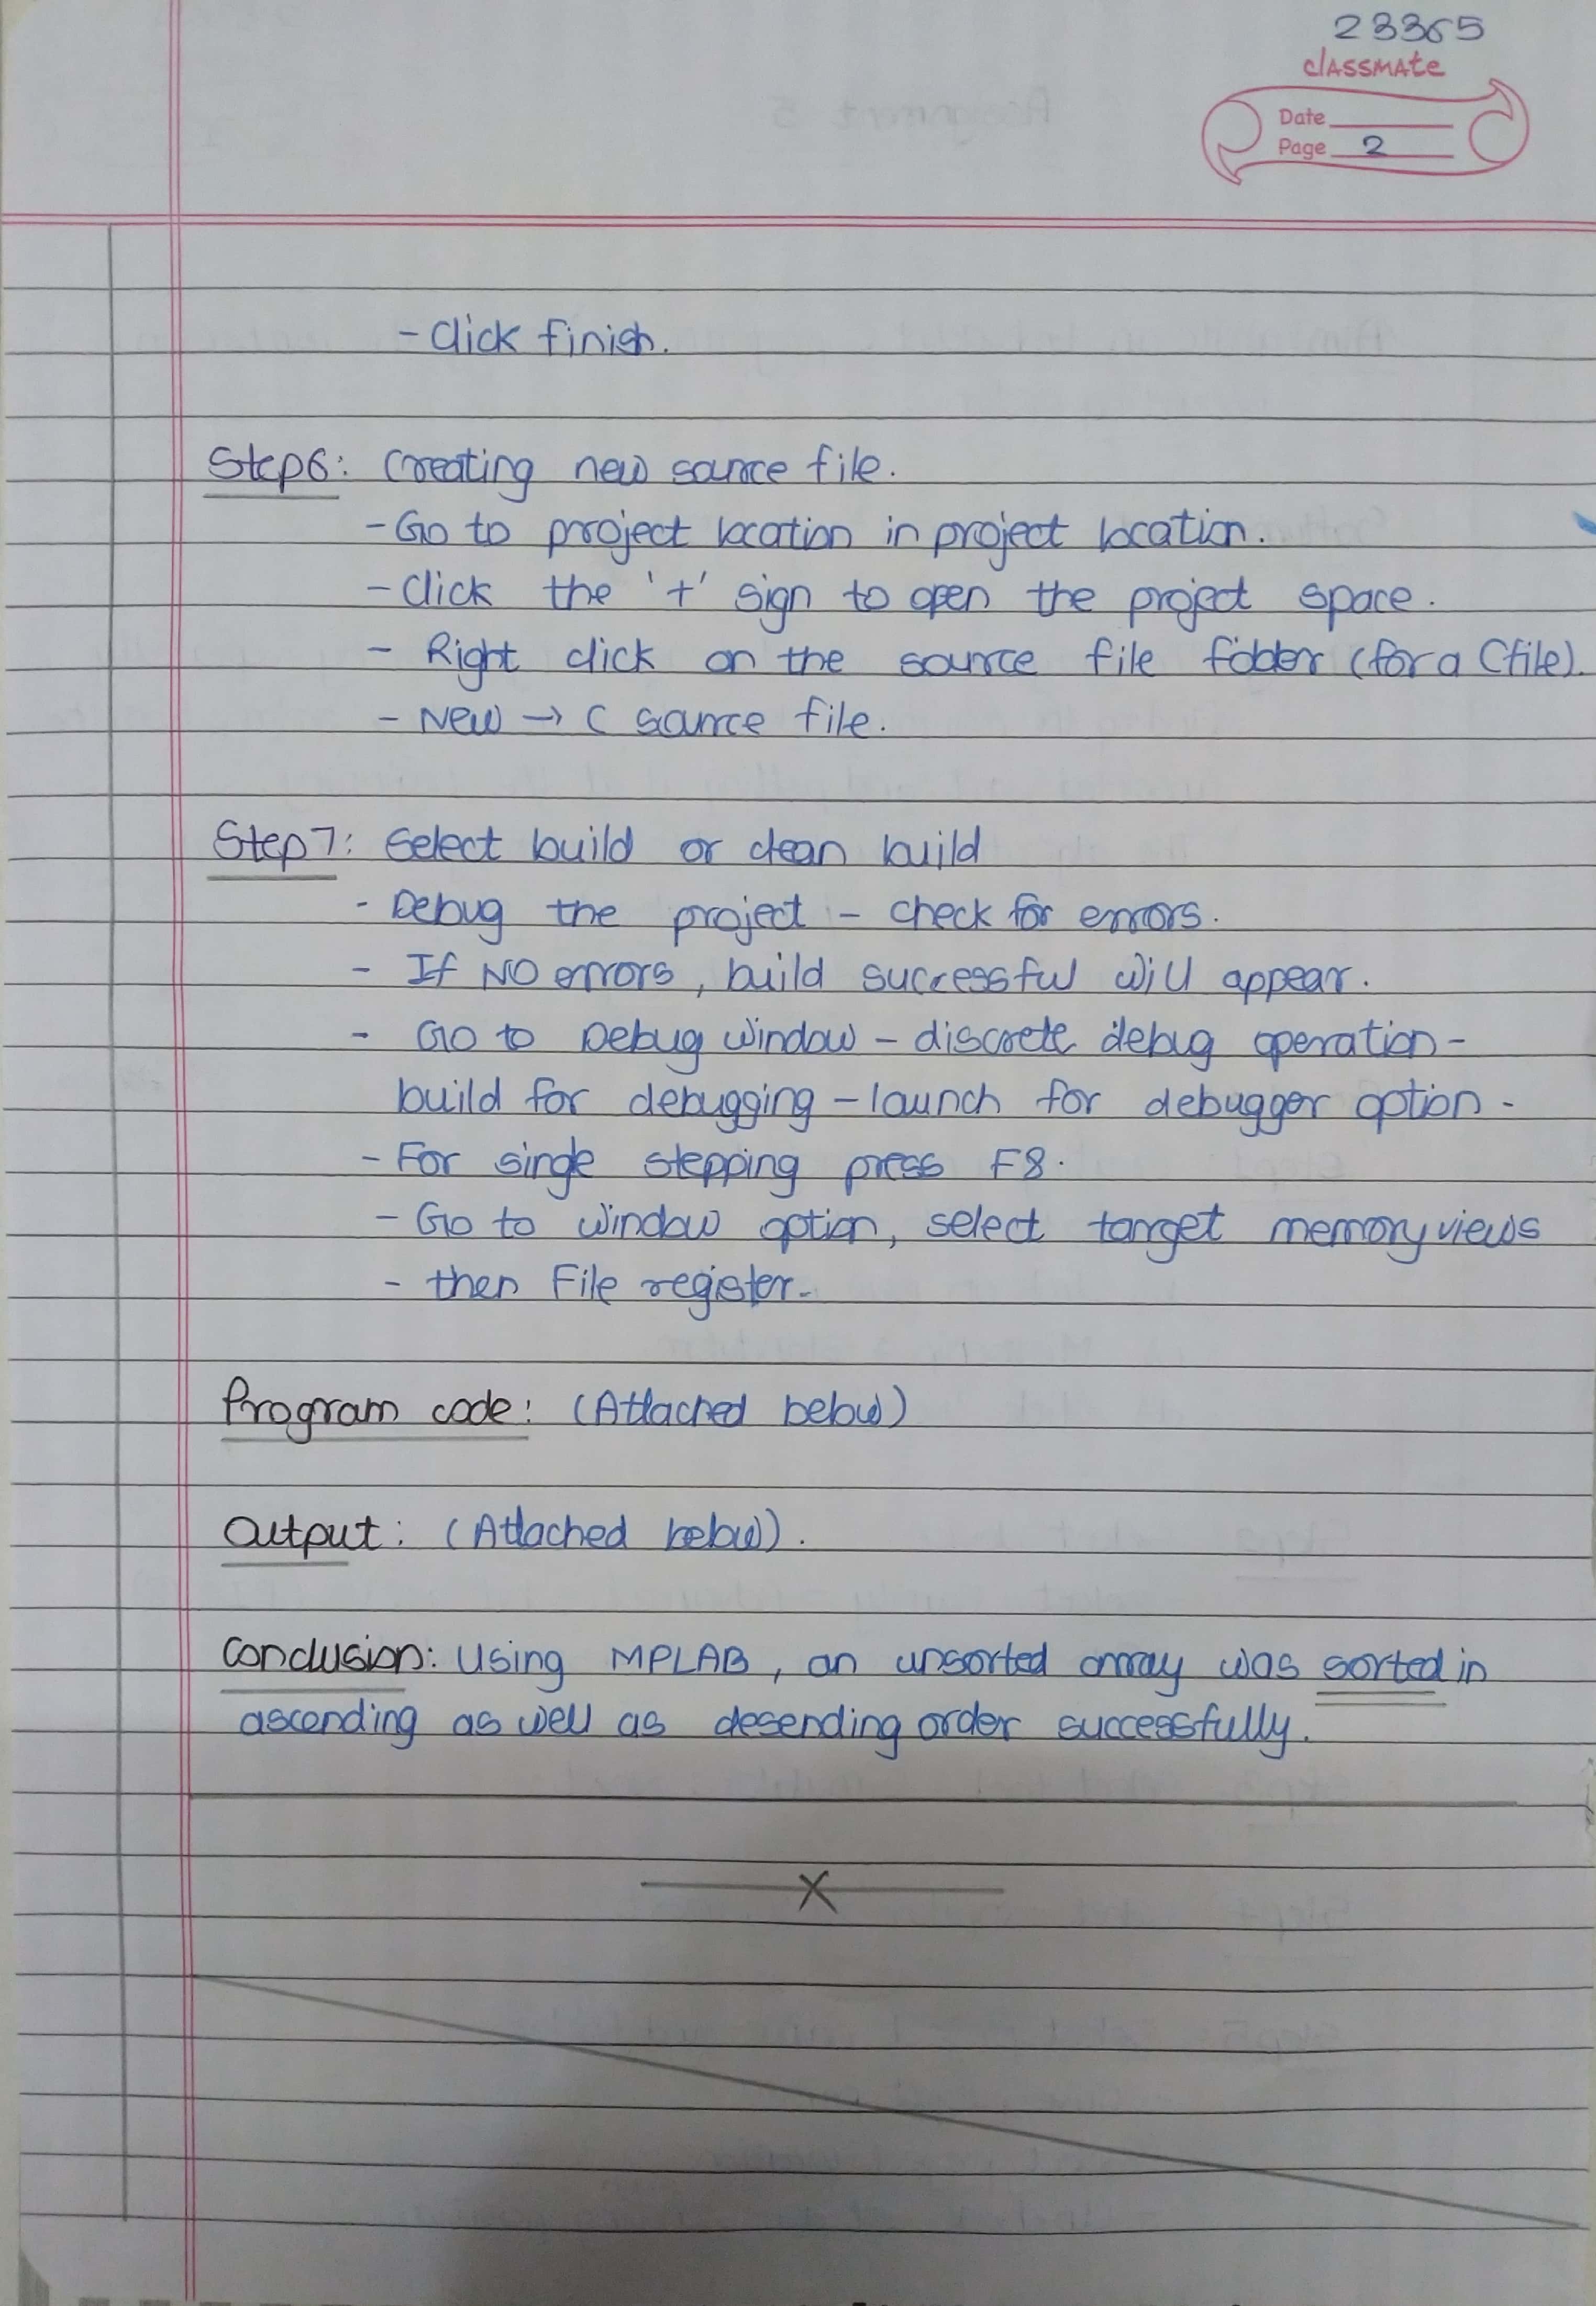 23365
classmate
Date
Page 2
- Click finish.
Step6: Creating new source file.
- Go to project location in project location.
- Click the '+' sign to open the project space.
- Right click on the source file folder (for a C file).
- New → C source file.
Step7: Select build or clean build
- Debug the project - check for errors.
- If NO errors, build successful will appear.
- Go to Debug window - discrete debug operation -
build for debugging - launch for debugger option -
- For single stepping press F8.
- Go to window option, select target memory views
- then File register.
Program code: (Attached below)
Output: (Attached below).
Conclusion: Using MPLAB, an unsorted array was sorted in
ascending as well as desending order successfully.
X